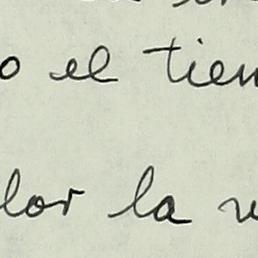 o el tiem
lor la v